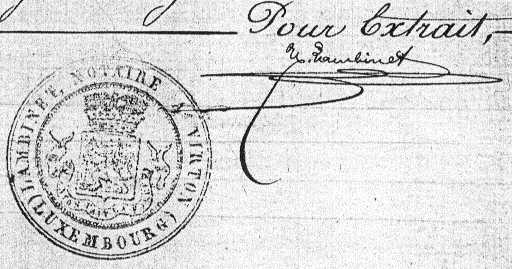 Pour Extrait,
Lambinet
LAMBINET, NOTAIRE A VIRTON
(LUXEMBOURG)